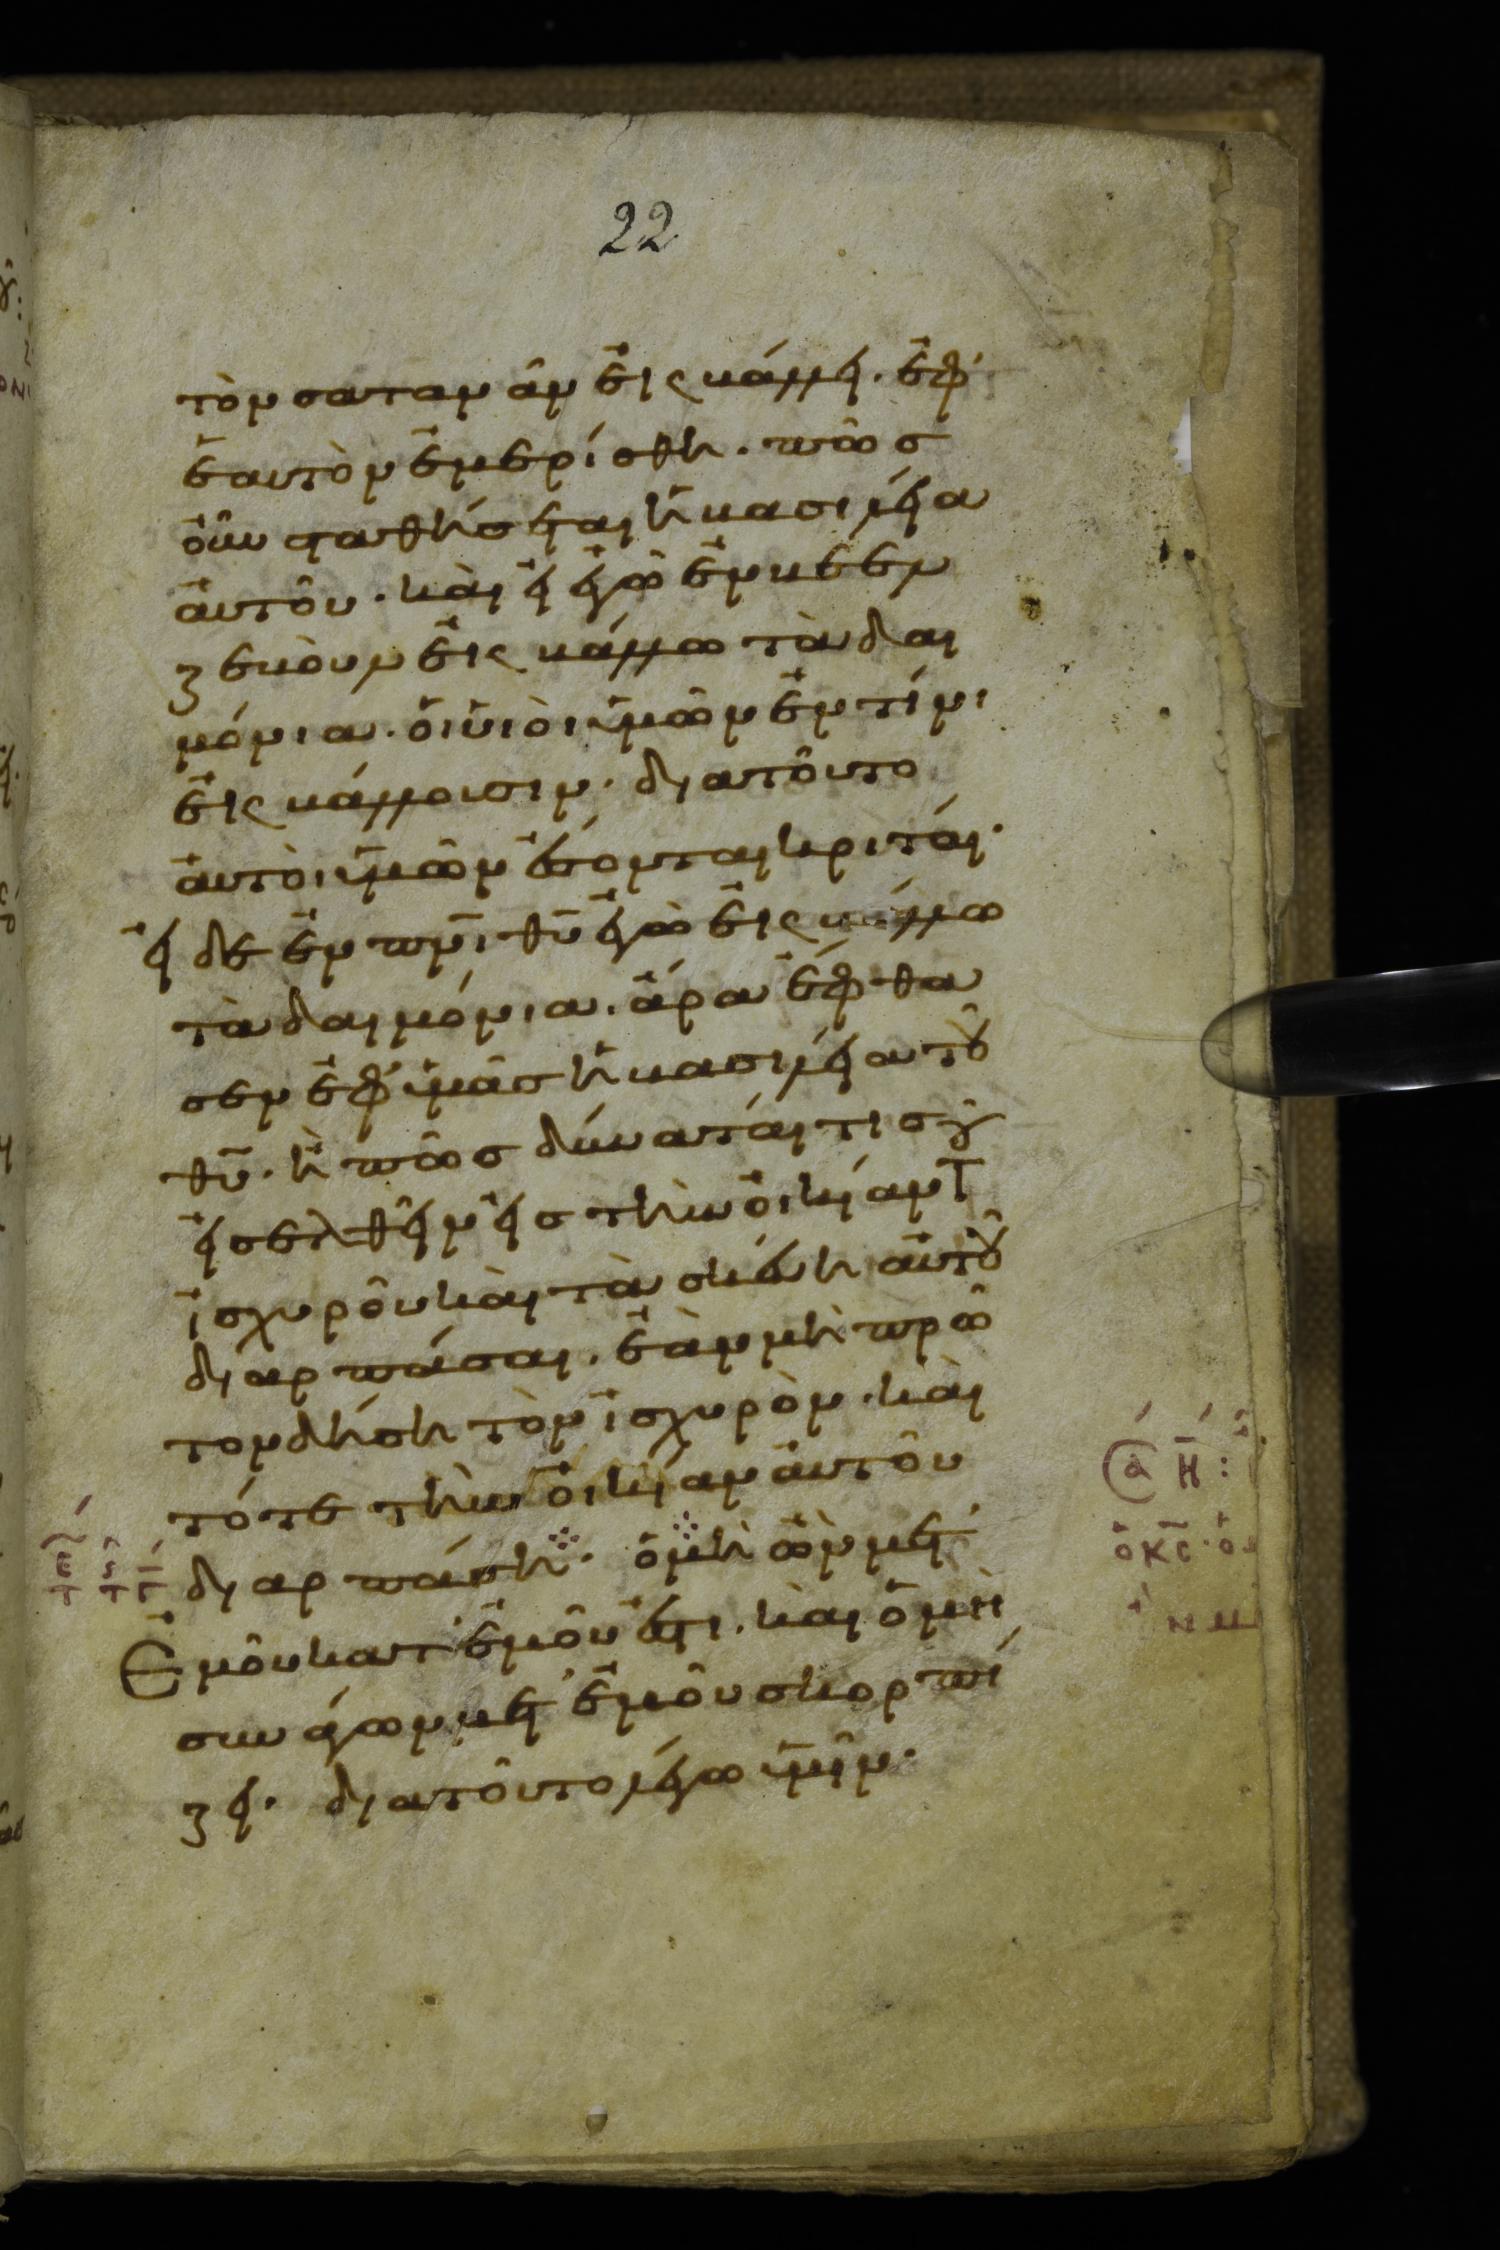 22
τὸν σατανᾶν ἐκβάλλει. ἐφ'
ἑαυτὸν ἐμερίσθη. πῶς
οὖν σταθήσεται ἡ βασιλεία
αὐτοῦ. καὶ εἰ ἐγὼ ἐν βεελ
ζεβοὺλ ἐκβάλλω τὰ δαι
μόνια. οἱ υἱοὶ ὑμῶν ἐν τίνι
ἐκβάλλουσιν. διατοῦτο
αὐτοὶ ὑμῶν ἔσονται κριταί.
εἰ δὲ ἐν πνῑ θῡ ἐγὼ ἐκβάλλω
τὰ δαιμόνια. ἄρα ἔφθα
σεν ἐφ' ὑμᾶς ἡ βασιλεία τοῦ
θῡ. ἢ πῶς δύναταί τισ
εἰσελθεῖν εἰς τὴν οἰκίαν τ
ἰσχυροῦ καὶ τὰ σκεύη αὐτοῦ
διαρπάσαι. ἐὰν μὴ πρῶ
τον δήση τὸν ἰσχυρὸν. καὶ
τότε τὴν οἰκίαν αὐτοῦ
διαρπάση. ὁ μὴ ὢν μετ'
ἐμοῦ κατ' ἐμοῦ ἐστι. καὶ ὁ μὴ
συνάγων μετ' ἐμοῦ σκορπί
ζει. διατοῦτο λέγω ὑμῖν.